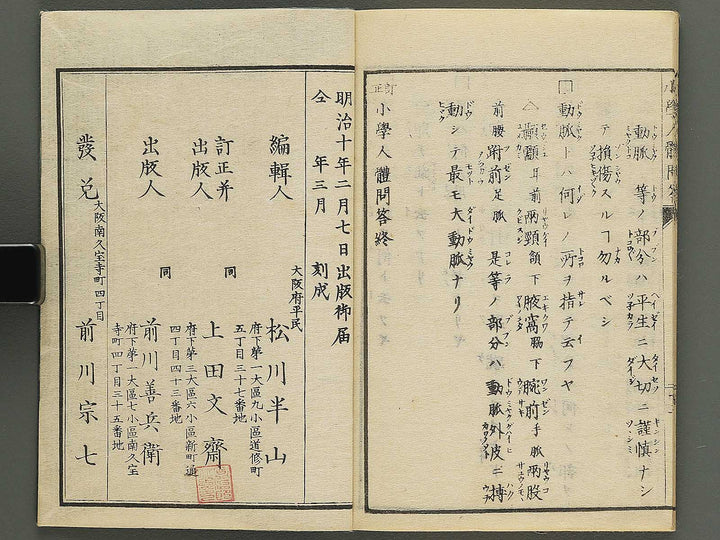 動脈等ノ部分ハ平生ニ大切ニ謹慎ナシ
テ損傷スルヿ勿ルベシ
動脈トハ何レノ所ヲ指テ云フヤ
顳顬耳前兩頸頷下腋窩脇下腕前手脈兩股
前腰跗前足脈是等ノ部分ハ動脈外皮ニ搏
動シテ最モ大動脈ナリ
訂正小學人體問答終
明治十年二月七日出版御届
仝年三月刻成
大阪府平民
編輯人 松川半山
府下第一大區九小區道修町
五丁目三十七番地
訂正并出版人 同 上田文齋
府下第三大區六小區新町通
四丁目四十三番地
出版人 同 前川善兵衛
府下第一大區七小區南久宝
寺町四丁目三十五番地
大阪南久宝寺町四丁目
發兌 前川宗七